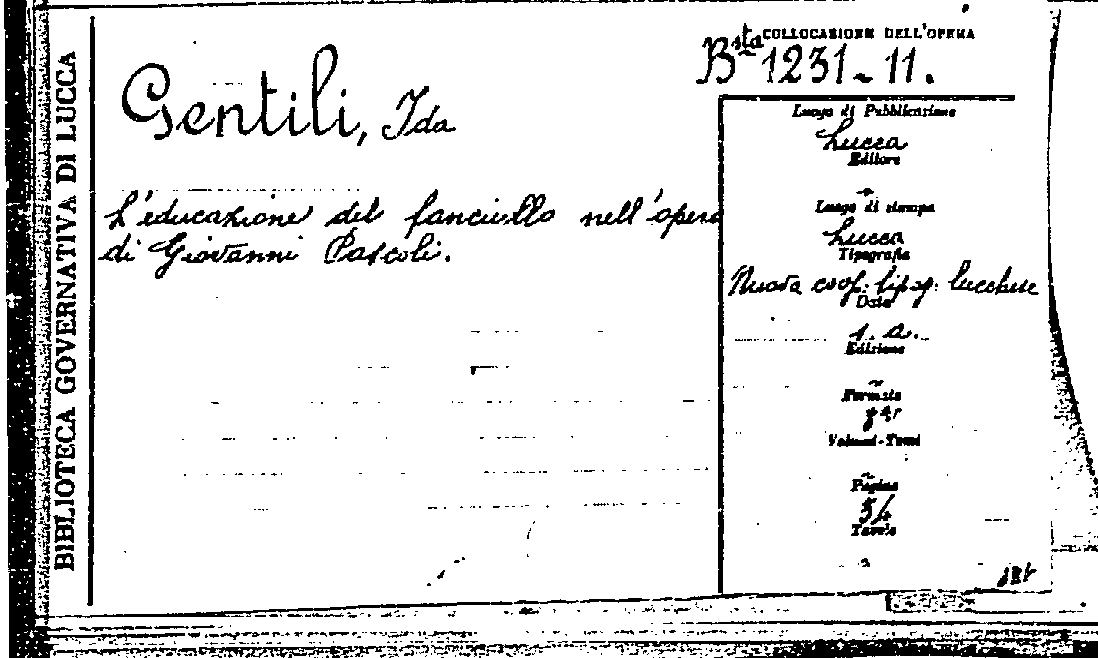 BIBLIOTECA GOVERNATIVA DI LUCCA
COLLOCAZIONE DELL'OPERA
Bsta 1231-11.
Gentili, Ida
L'educazione del fanciullo nell'opera
di Giovanni Pascoli.
Luogo di Pubblicazione
Lucca
Editore
~
Luogo di stampa
Lucca
Tipografia
Nuova coop. tipog. lucchese
Data
s. a.
Edizione
~
Formato
Volumi-Tomi
~
Pagine
54
Tavole